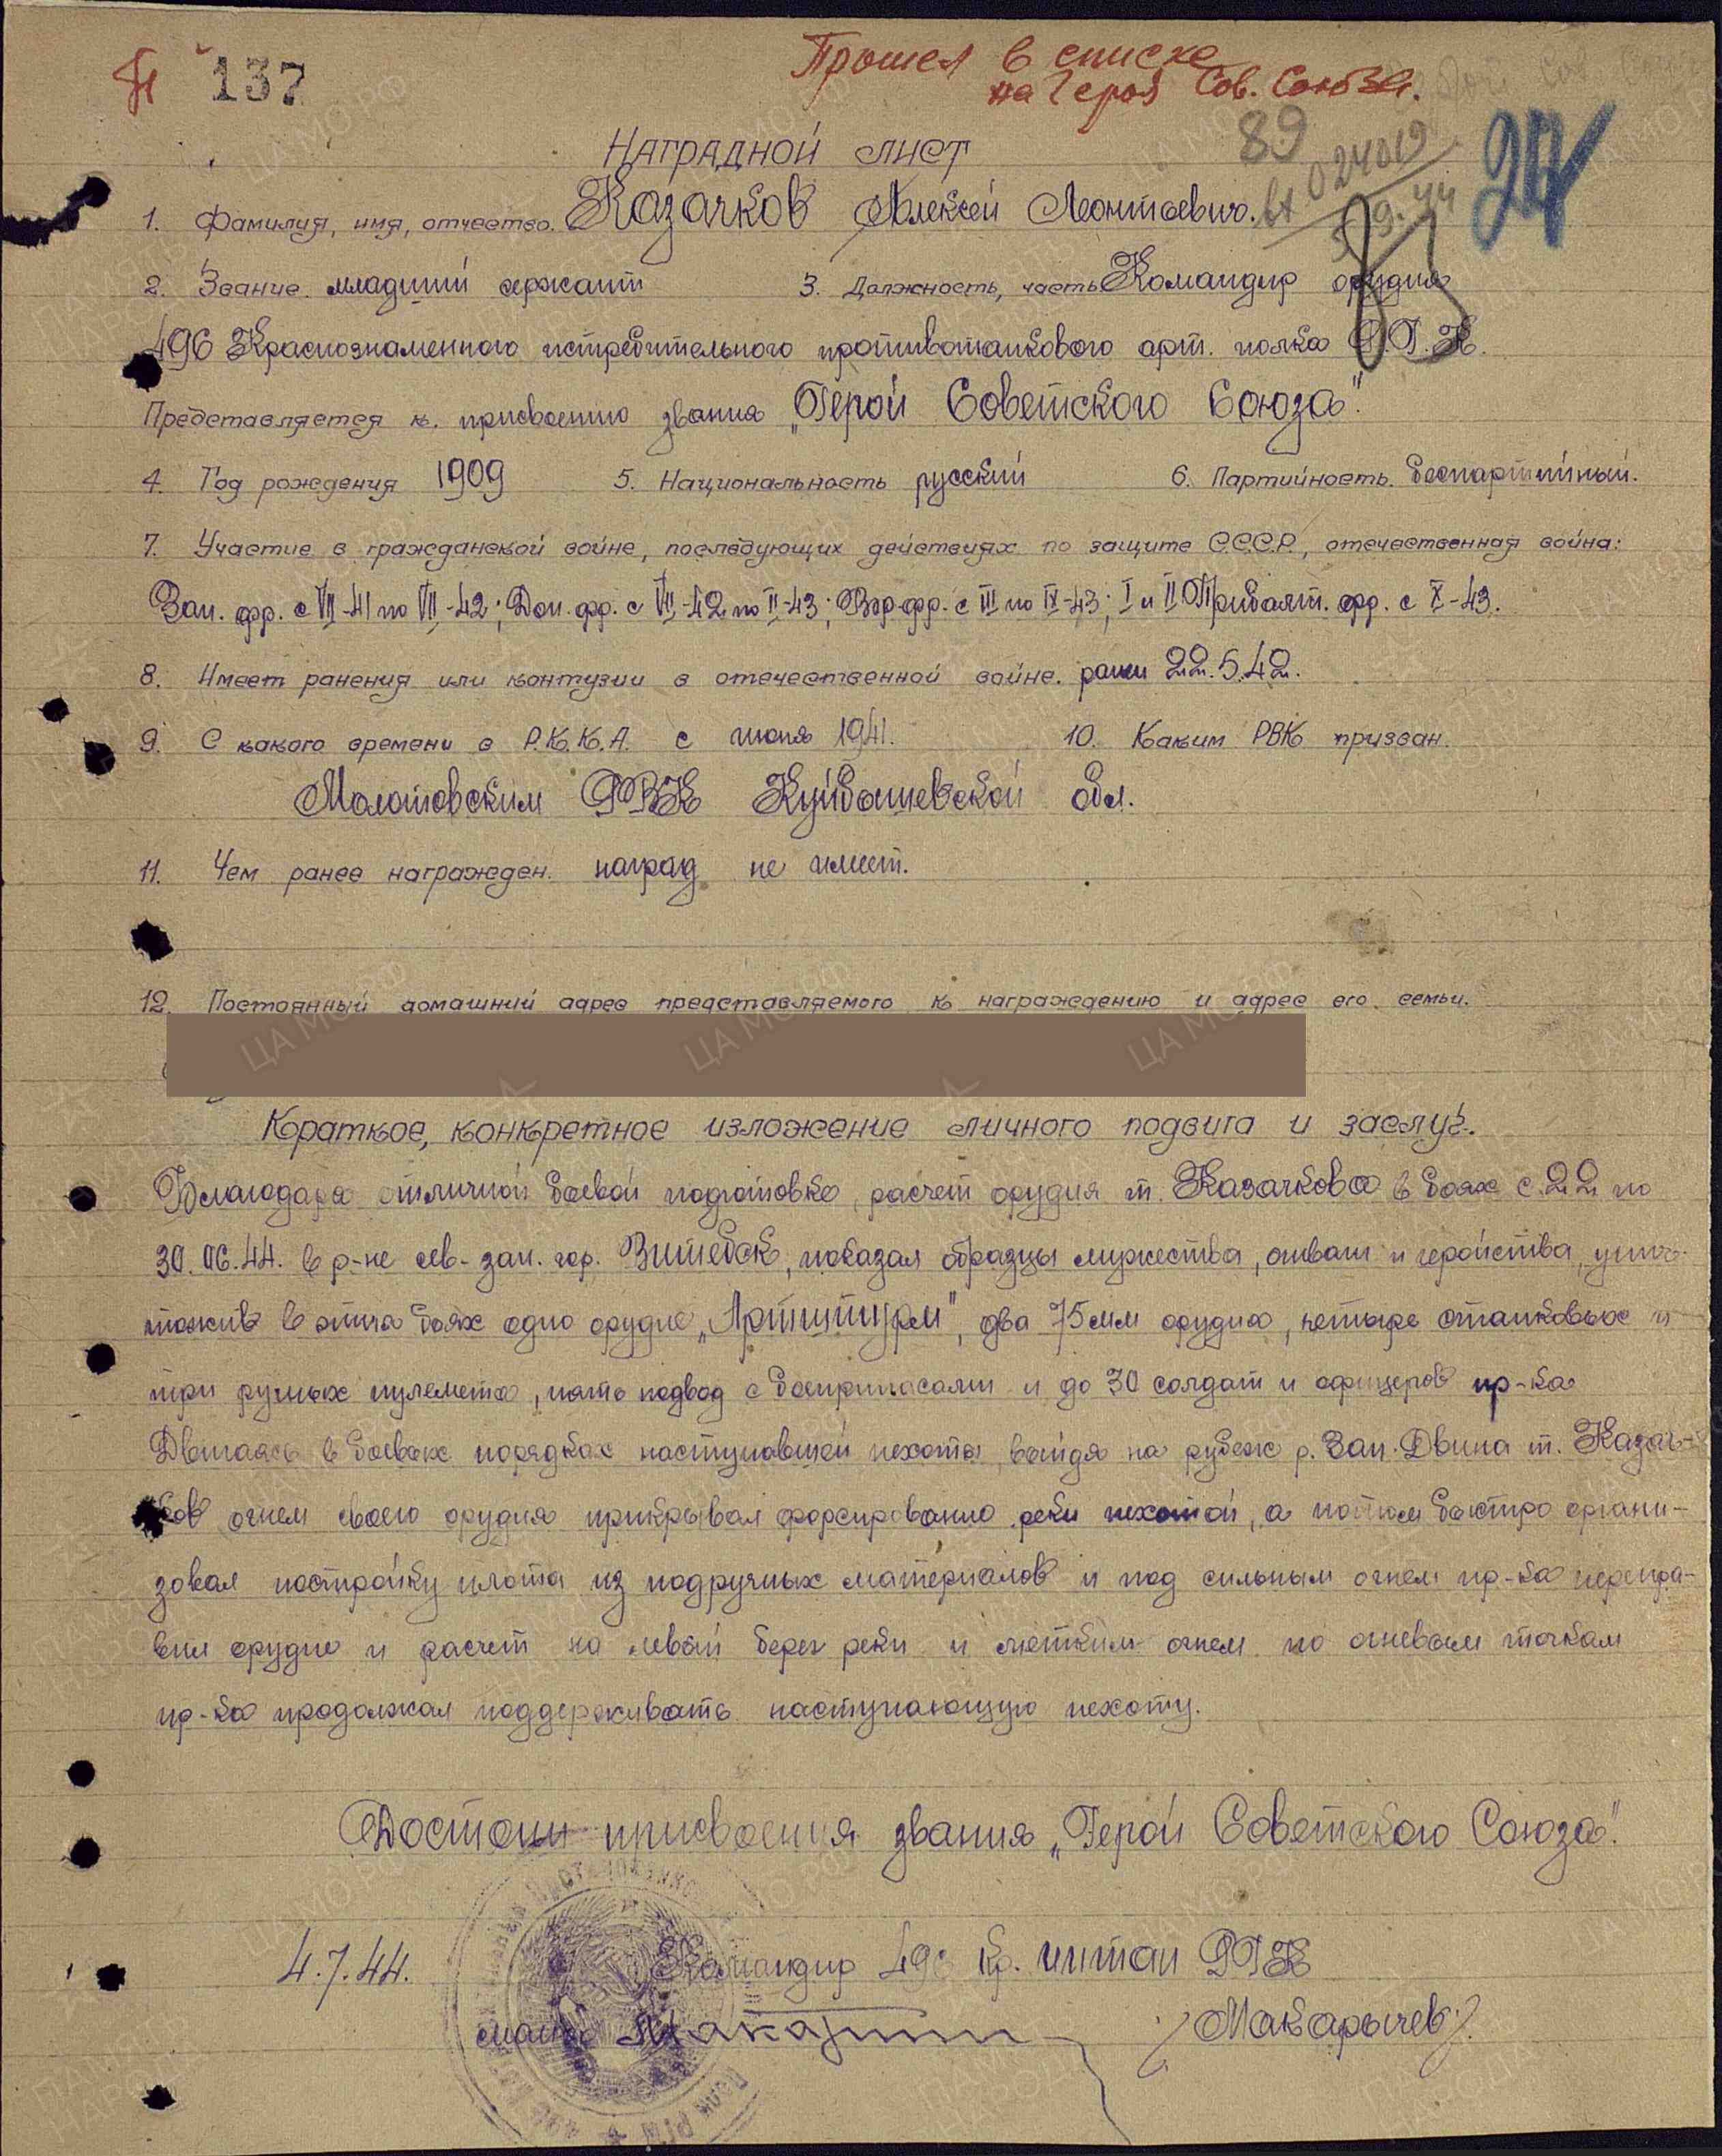 137
Прошел в списке
на Героя Сов. Союза.
89
Наградной лист
вх 024019
5.9.44
1. Фамилия, имя, отчество. Казачков Алексей Леонтьевич.
2. Звание. младший сержант 3. Должность, часть Командир орудия
496 Краснознаменного истребительного противотанкового арт. полка Р.Г.К.
Представляется к. присвоению звания „Герой Советского Союза".
4. Год рождения 1909 5. Национальность русский 6. Партийность. беспартийный.
7. Участие в гражданской войне, последующих действиях по защите С.С.С.Р., отечественная война:
Зап. фр. с VII-41 по VII-42; Дон. фр. с VII-42 по II-43; Вор. фр. с III по IX-43; I и II Прибалт. фр. с X-43.
8. Имеет ранения или контузии в отечественной войне. ранен 22.5.42.
9. С какого времени в Р.К.К.А. с июля 1941. 10. Каким РВК призван.
Молотовским РВК Куйбышевской обл.
11. Чем ранее награжден. наград не имеет.
12. Постоянный домашний адрес представляемого к награждению и адрес его семьи.
Краткое, конкретное изложение личного подвига и заслуг.
Благодаря отличной боевой подготовке, расчет орудия т. Казачкова в боях с 22 по
30.06.44. в р-не сев-зап. гор. Витебск, показал образцы мужества, отваги и геройства, унич-
тожив в этих боях одно орудие „Артштурм", два 75мм орудия, четыре станковых и
три ручных пулемета, пять подвод с боеприпасами и до 30 солдат и офицеров пр-ка
Двигаясь в боевых порядках наступавшей пехоты, выйдя на рубеж р. Зап. Двина т. Казач-
ков огнем своего орудия прикрывал форсирование реки пехотой, а потом быстро органи-
зовал постройку плота из подручных материалов и под сильным огнем пр-ка перепра-
вил орудие и расчет на левый берег реки и метким огнем по огневым точкам
пр-ка продолжал поддерживать наступающую пехоту.
Достоин присвоения звания „Герой Советского Союза".
4.7.44. Командир 496 Кр. иптап РГК
майор /Макарычев/.